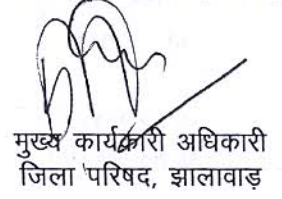 मुख्य कार्यकारी अधिकारी
जिला परिषद, झालावाड़